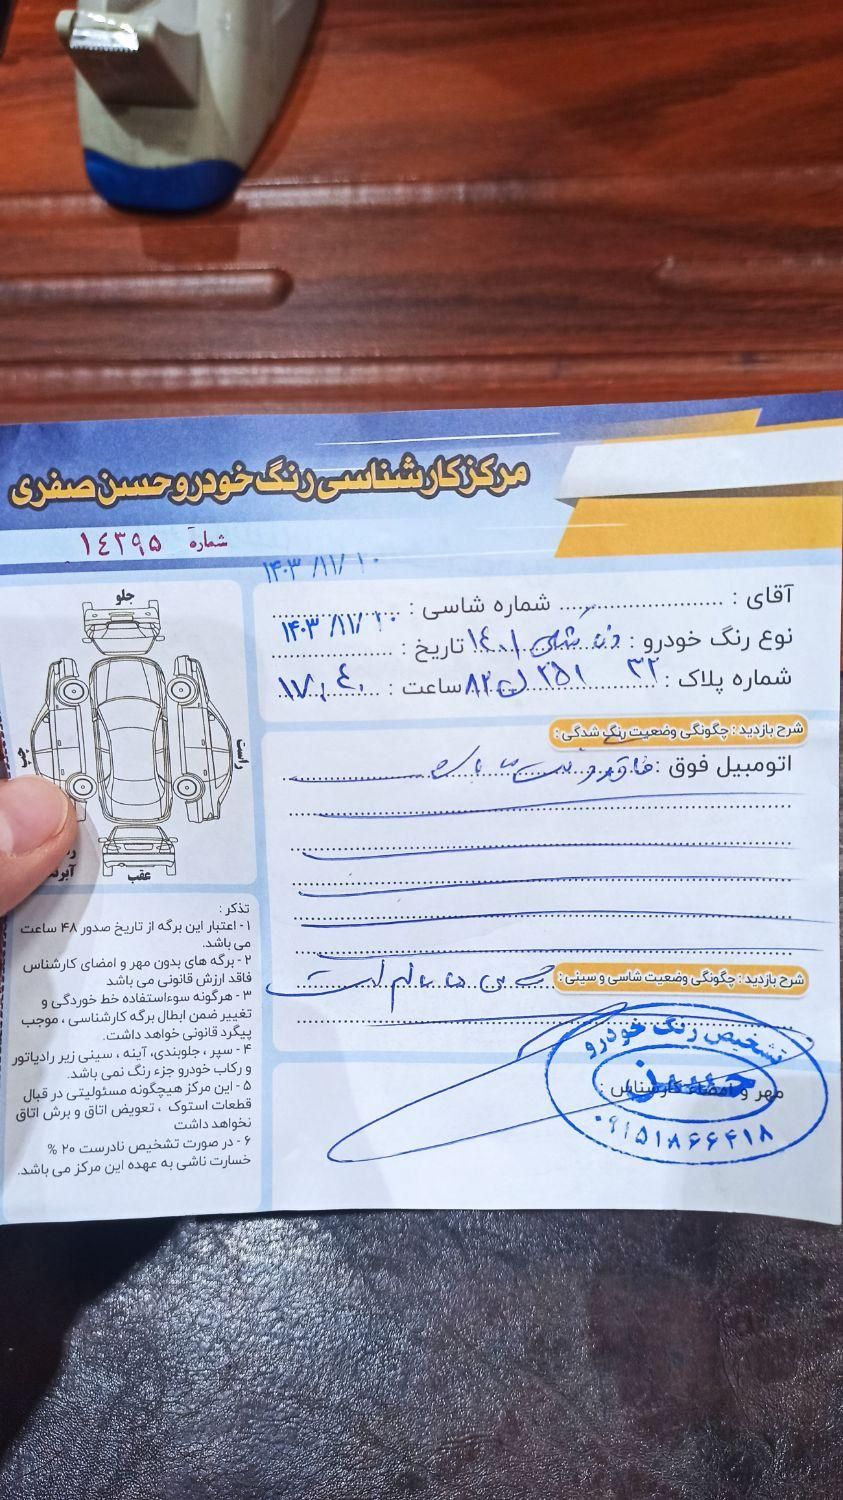 مرکز کارشناسی رنگ خودرو حسن صفری
شماره ۱٤۳۹۵
۱۴۰۳/۱۱/۱۰
آقای : شماره شاسی :
نوع رنگ خودرو : ۱۴۰۱ تاریخ : ۱۴۰۳/۱۱/۱۰
شماره پلاک : ۳۲ ۲۵۱ ل ۸۲ ساعت : ۱۷,۴۰
شرح بازدید : چگونگی وضعیت رنگ شدگی :
اتومبیل فوق : فاقد رنگ می باشد
شرح بازدید : چگونگی وضعیت شاسی و سینی : شاسی ها سالم است
مهر و امضاء کارشناس :
تشخیص رنگ خودرو
حسن
۰۹۱۵۱۸۶۶۴۱۸
جلو
راست
چپ
عقب
تذکر :
۱- اعتبار این برگه از تاریخ صدور ۴۸ ساعت
می باشد.
۲- برگه های بدون مهر و امضای کارشناس
فاقد ارزش قانونی می باشد
۳- هرگونه سوءاستفاده خط خوردگی و
تغییر ضمن ابطال برگه کارشناسی ، موجب
پیگرد قانونی خواهد داشت.
۴- سپر ، جلوبندی، آینه ، سینی زیر رادیاتور
و رکاب خودرو جزء رنگ نمی باشد.
۵- این مرکز هیچگونه مسئولیتی در قبال
قطعات استوک ، تعویض اتاق و برش اتاق
نخواهد داشت
۶- در صورت تشخیص نادرست ۲۰ %
خسارت ناشی به عهده این مرکز می باشد.